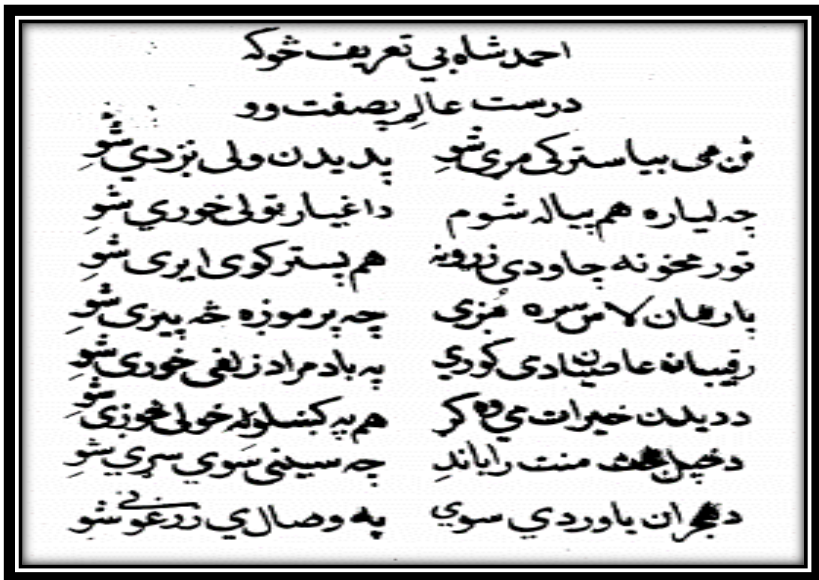 احمدشاه بي تعريف څوکه
درست عالم پصفت وو
نن مي بيا سترکی مړی شو پديدن ولی نژدی شو
چه ليا ره هم پياله شوم داغيار ټولی خوری شو
تور مخونه چاودی زړونه هم پستر کوی ايری شو
ياريمان لاس سره مږی چه پر موږه څه پيری شو
رقيبان عاصيان دی کوري په باد مراد زلفی خوری شو
د ديدن خيرات مي وه کړ هم په کښلو خولی غوږی شو
دخپل بخت منت راباند چه سينی سوي سړي شو
دهجران ياوردي سوي په وصال ي زرغونی شو